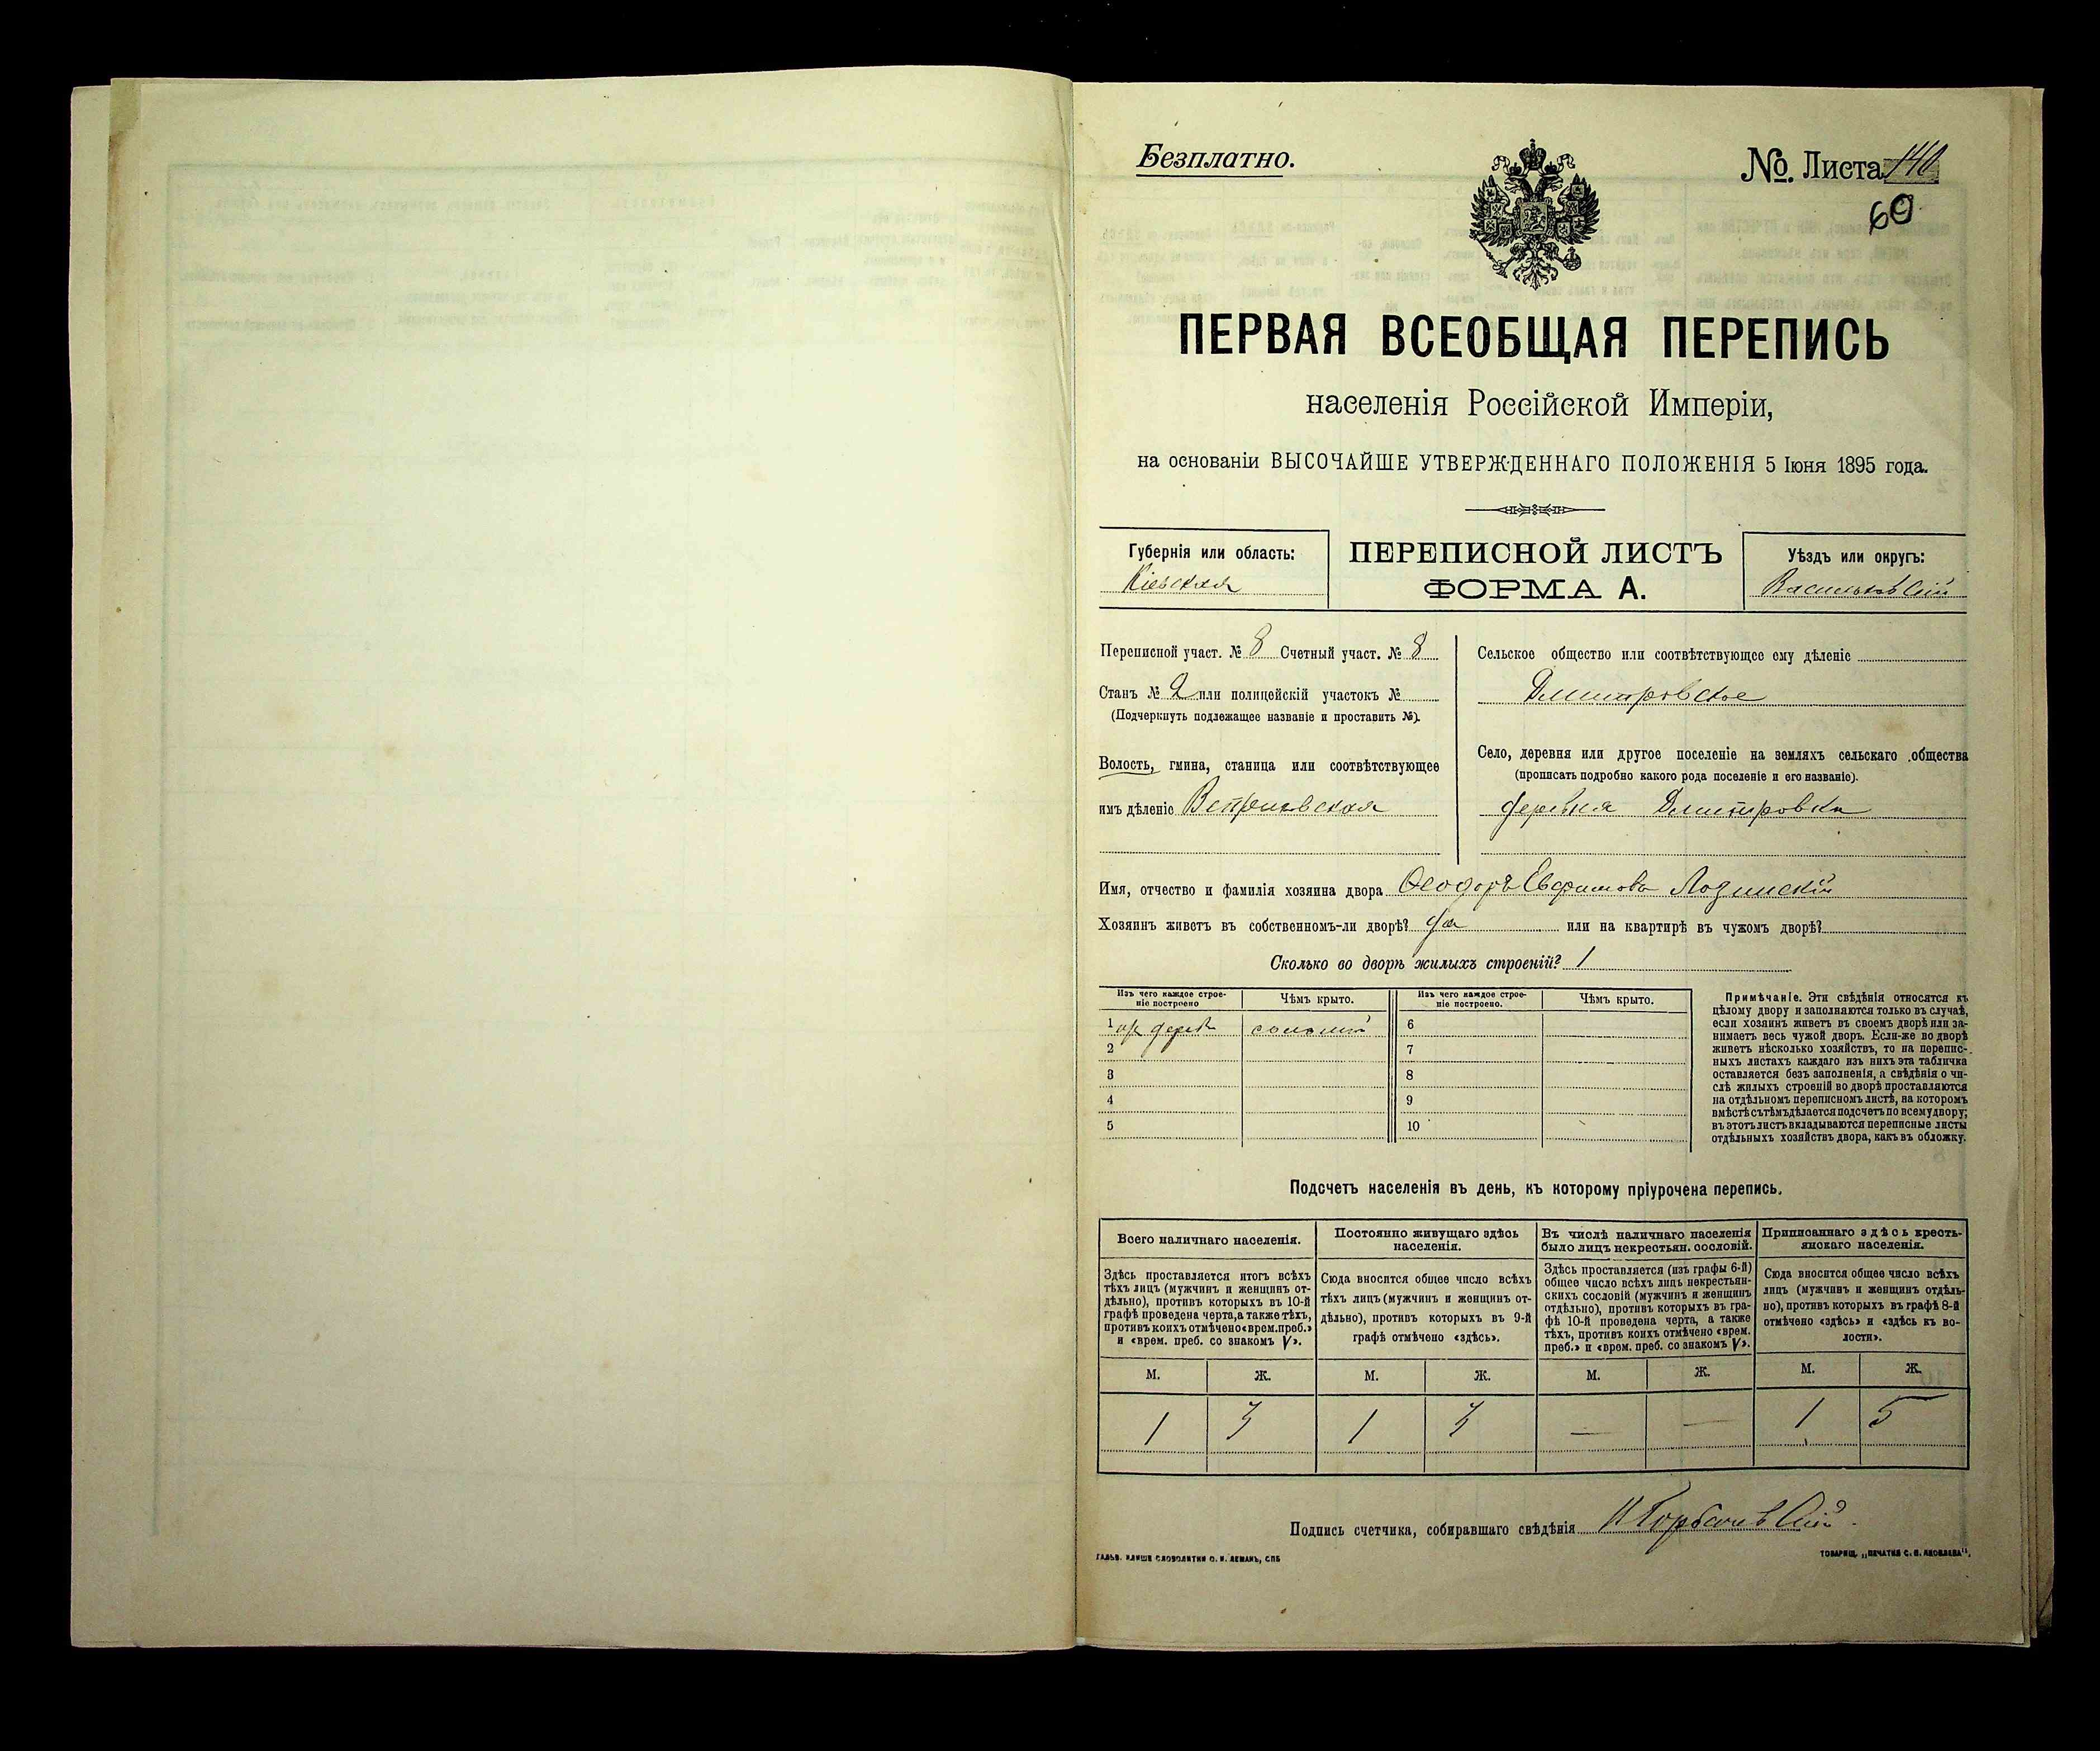 Безплатно.
№. Листа 140
60
ПЕРВАЯ ВСЕОБЩАЯ ПЕРЕПИСЬ
населенія Россійской Имперіи,
на основаніи ВЫСОЧАЙШЕ УТВЕРЖДЕННАГО ПОЛОЖЕНІЯ 5 Іюня 1895 года.
Губернія или область:
Кіевская
ПЕРЕПИСНОЙ ЛИСТЪ
ФОРМА А.
Уѣздъ или округъ:
Васильковскій
Переписной участ. № 8 Счетный участ. № 8
Станъ № 2 или полицейскій участокъ №
(Подчеркнуть подлежащее названіе и проставить №).
Волость, гмина, станица или соотвѣтствующее
имъ дѣленіе
Сельское общество или соотвѣтствующее ему дѣленіе
Дмитровское
Село, деревня или другое поселеніе на земляхъ сельскаго общества
(прописать подробно какого рода поселеніе и его названіе).
деревня Дмитровка
Имя, отчество и фамилія хозяина двора Ѳеодоръ Евфимовъ Лозинскій
Хозяинъ живетъ въ собственномъ-ли дворѣ? да или на квартирѣ въ чужомъ дворѣ?
Сколько во дворѣ жилыхъ строеній? 1
Изъ чего каждое строе-
ніе построено
Чѣмъ крыто.
Изъ чего каждое строе-
ніе построено.
Чѣмъ крыто.
1 дерев соломой 6
2 7
3 8
4 9
5 10
Примѣчаніе. Эти свѣдѣнія относятся къ
цѣлому двору и заполняются только въ случаѣ,
если хозяинъ живетъ въ своемъ дворѣ или за-
нимаетъ весь чужой дворъ. Если-же во дворѣ
живетъ нѣсколько хозяйствъ, то на перепис-
ныхъ листахъ каждаго изъ нихъ эта табличка
оставляется безъ заполненія, а свѣдѣнія о чи-
слѣ жилыхъ строеній во дворѣ проставляются
на отдѣльномъ переписномъ листѣ, на которомъ
вмѣстѣ съ тѣмъ дѣлается подсчетъ по всему двору;
въ этотъ листъ вкладываются переписные листы
отдѣльныхъ хозяйствъ двора, какъ въ обложку.
Подсчетъ населенія въ день, къ которому пріурочена перепись.
Всего наличнаго населенія.
Здѣсь проставляется итогъ всѣхъ
тѣхъ лицъ (мужчинъ и женщинъ от-
дѣльно), противъ которыхъ въ 10-й
графѣ проведена черта, а также тѣхъ,
противъ коихъ отмѣчено «врем. преб.»
и «врем. преб. со знакомъ V».
Постоянно живущаго здѣсь
населенія.
Сюда вносится общее число всѣхъ
тѣхъ лицъ (мужчинъ и женщинъ от-
дѣльно), противъ которыхъ въ 9-й
графѣ отмѣчено «здѣсь».
Въ числѣ наличнаго населенія
было лицъ некрестьян. сословій.
Здѣсь проставляется (изъ графы 6-й)
общее число всѣхъ лицъ некрестьян-
скихъ сословій (мужчинъ и женщинъ
отдѣльно), противъ которыхъ въ гра-
фѣ 10-й проведена черта, а также
тѣхъ, противъ коихъ отмѣчено «врем.
преб.» и «врем. преб. со знакомъ V».
Приписаннаго здѣсь кресть-
янскаго населенія.
Сюда вносится общее число всѣхъ
лицъ (мужчинъ и женщинъ отдѣль-
но), противъ которыхъ въ графѣ 8-й
отмѣчено «здѣсь» и «здѣсь къ во-
лости».
М. Ж. М. Ж. М. Ж. М. Ж.
1 3 1 3 — — 1 5
Подпись счетчика, собиравшаго свѣдѣнія
ГАЛЬВ. КЛИШЕ СЛОВОЛИТНИ О. И. ЛЕМАНЪ, СПБ
ТОВАРИЩ. „ПЕЧАТНЯ С. П. ЯКОВЛЕВА“.